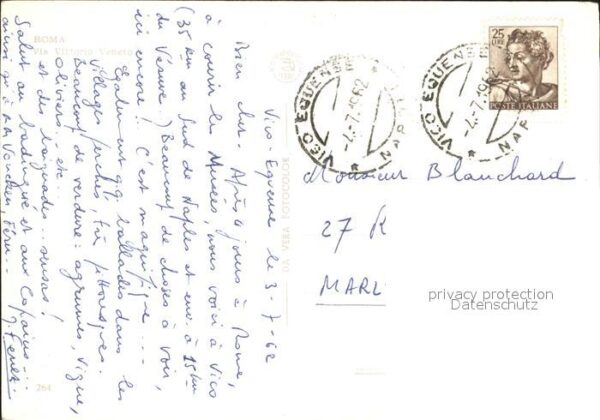 ROMA
Via Vittorio Veneto
Vico-Equense le 3-7-62
Bien cher. Après 4 jours à Rome,
à courir les Musées, nous voici à Vico
(35 km au Sud de Naples et env. à 15 km
du Vésuve). Beaucoup de choses à voir,
ici encore! C'est magnifique...
Egalement q.q. ballades dans les
Villages perchés, très pittoresques.
Beaucoup de verdure: agrumes, Vigne,
Oliviers.. etc...
et des baignades.. sensas!
Salut au et aux Copains...
ainsi qu'à
264
VERA FOTOCOLOR
VICO EQUENSE
4-7-1962
NAPOLI
VICO EQUENSE
4-7-1962
NAPOLI
25
LIRE
POSTE ITALIANE
Monsieur Blanchard
27 R
MARL
privacy protection
Datenschutz